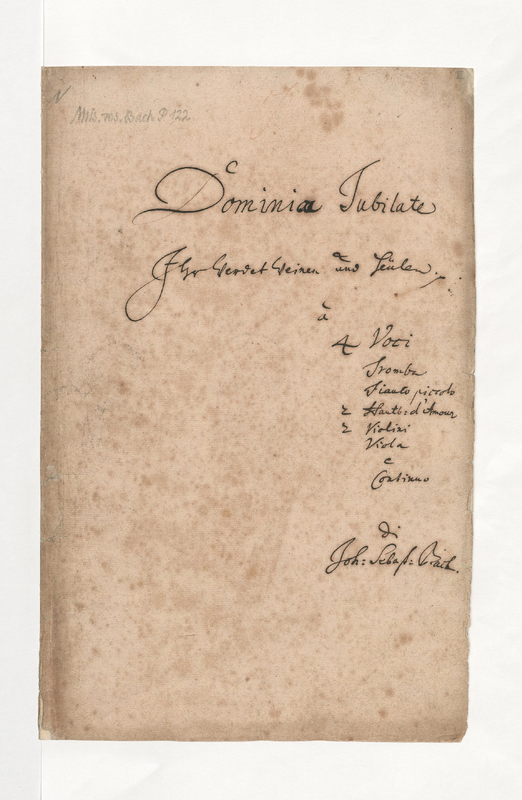 N
Mus. ms. Bach P 122
Dominica Jubilate
Ihr werdet weinen und heulen.
à
4 Voci
Tromba
Flauto piccolo
2 Hautb: d'Amour
2 Violini
Viola
e
Continuo
di
Joh: Sebast: Bach.